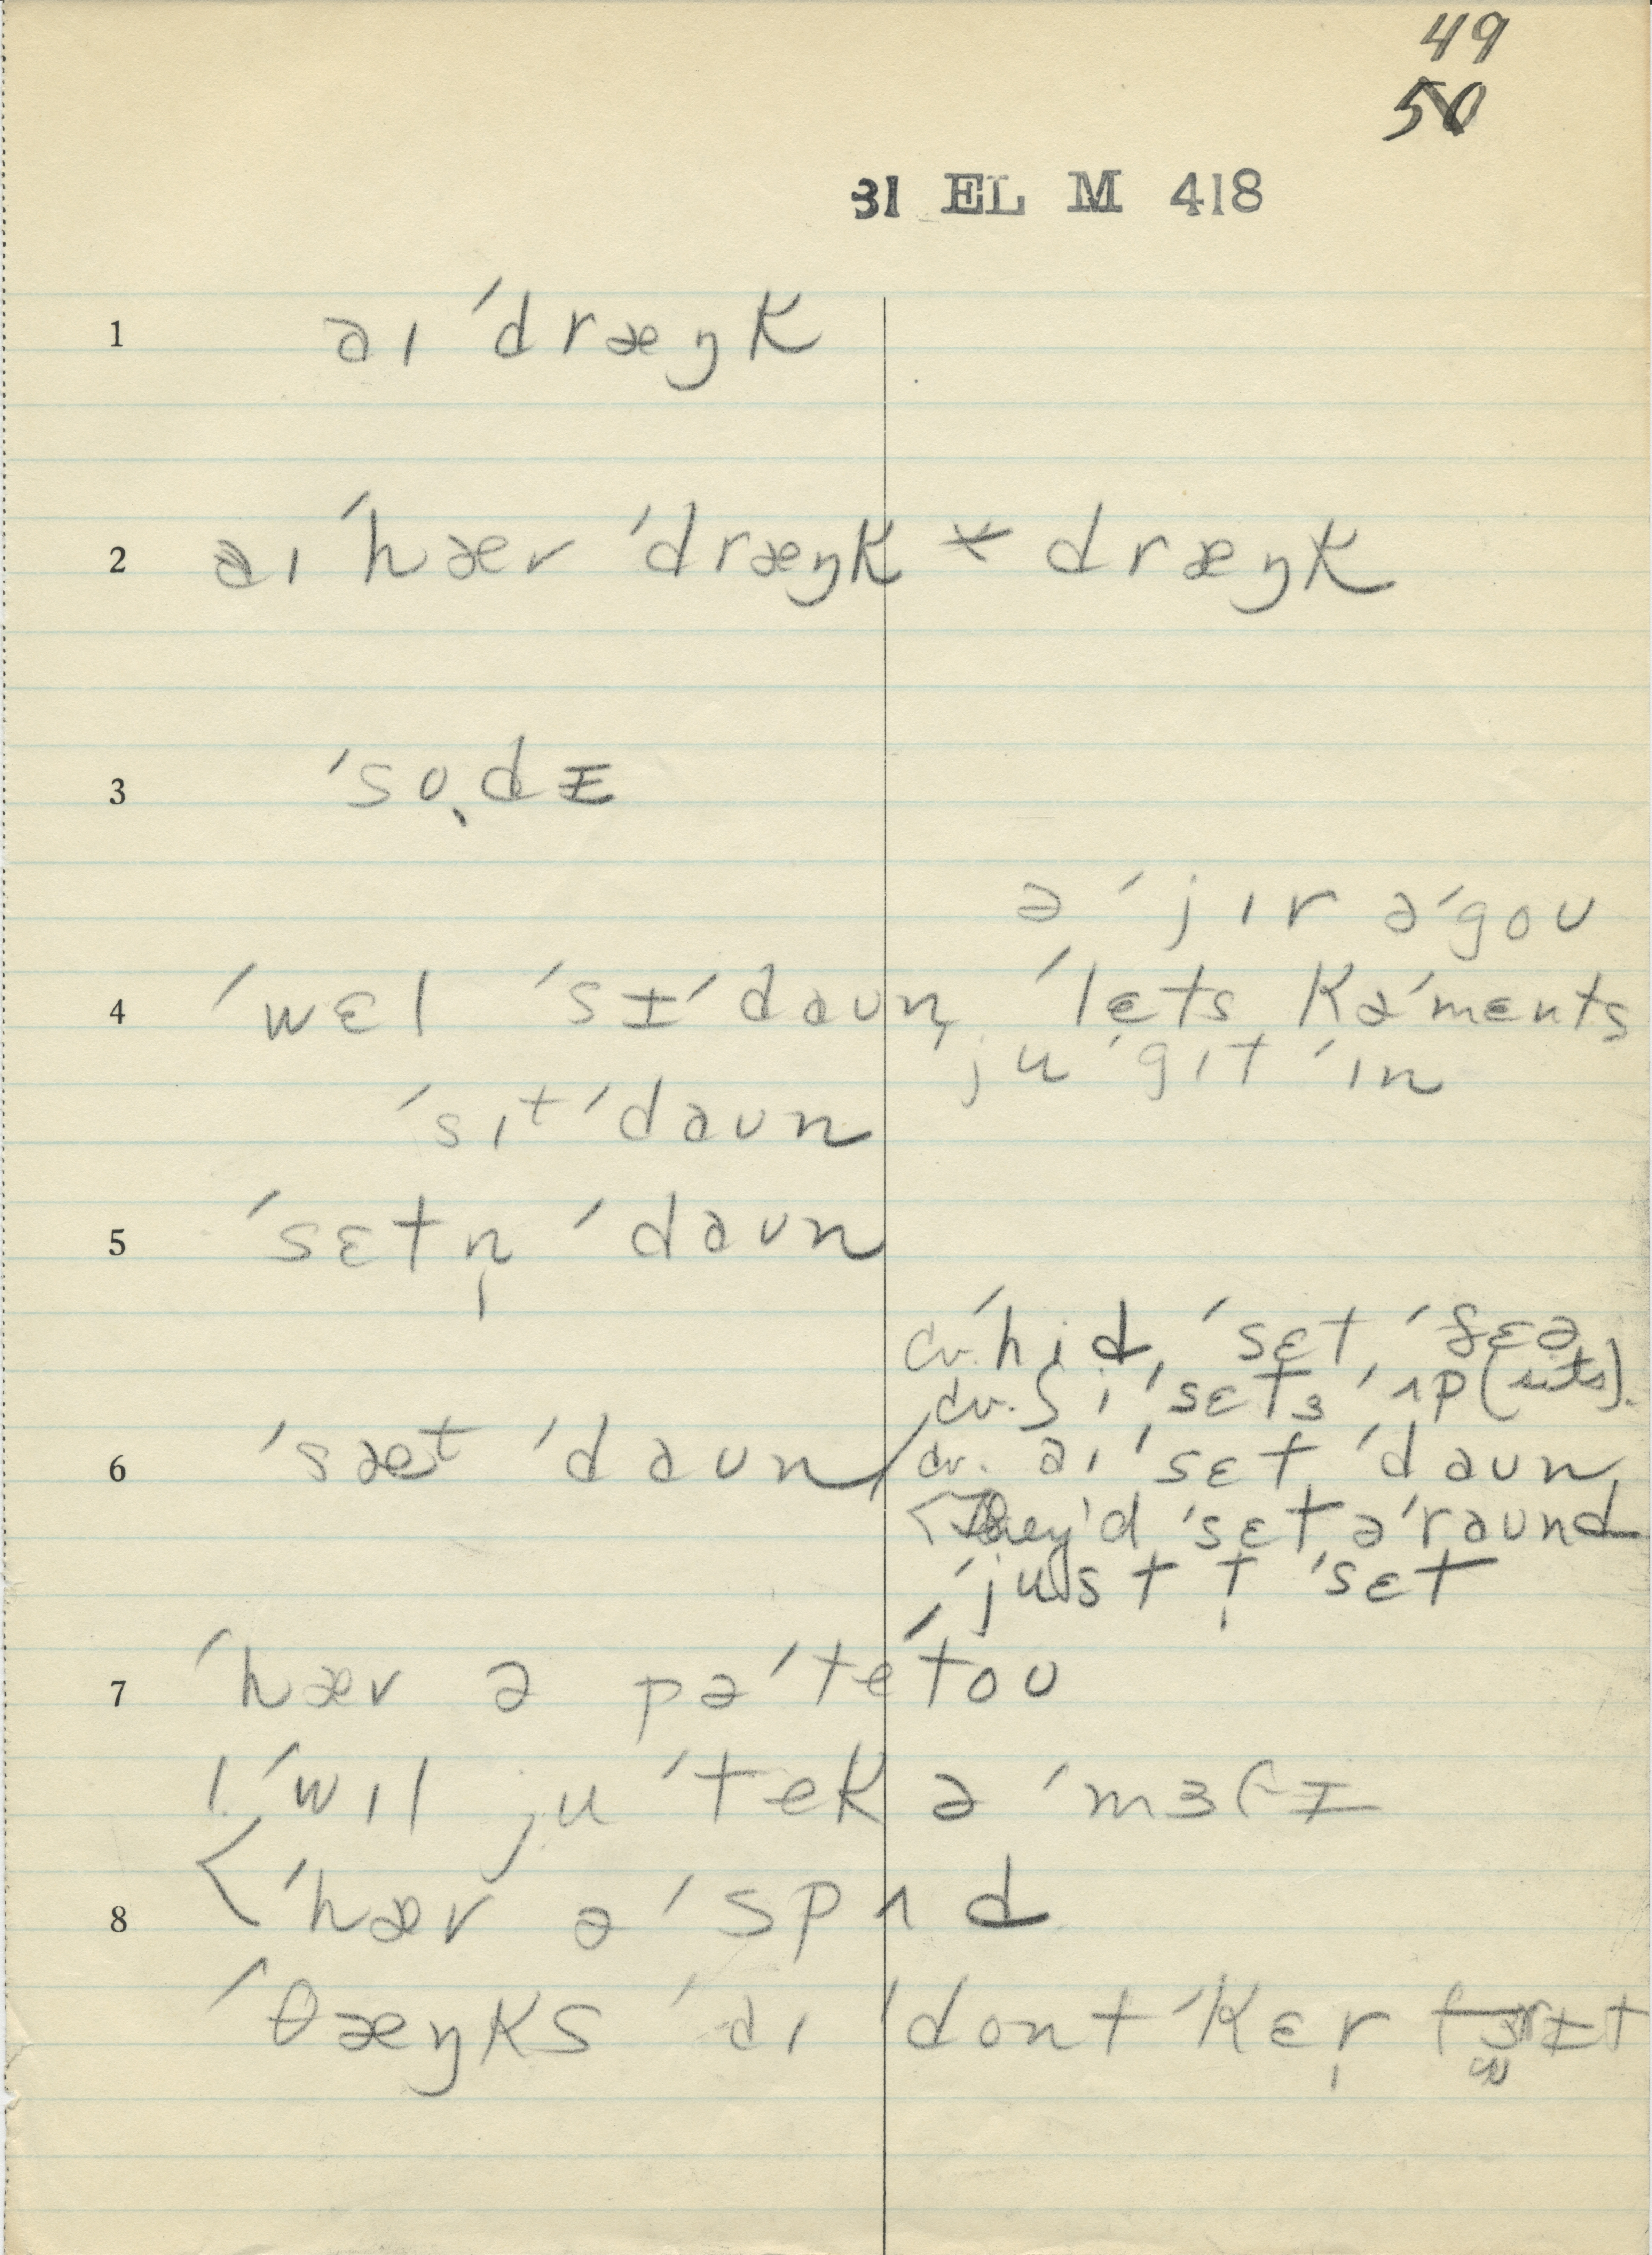 49
50
31 EL M 418
1 aɪ ˈdræŋk
2 aɪ ˈhæv ˈdræŋk * dræŋk
3 ˈsodᵻ
ə ˈjɪr əˈgoʊ
4 ˈwɛl ˈsᵻˈdaʊn, ˈlɛts kəˈmɛnts
ju ˈgɪt ˈɪn
ˈsɪt ˈdaʊn
5 ˈsɛtn̩ ˈdaʊn
cv. ˈhid, ˈsɛt, ˈðɛə
cv. ʃi ˈsɛts ˈʌp (sits).
6 ˈsæt ˈdaʊn / cv. aɪ ˈsɛt ˈdaʊn
< They'd ˈsɛt əˈraʊnd
ˈjust t ˈsɛt
7 ˈhæv ə pəˈteˈtoʊ
ˈwɪl ju ˈtek ə ˈmɜ
8 < ˈhæv ə ˈspʌd
ˈθæŋks ˈaɪ ˈdont ˈkɛr